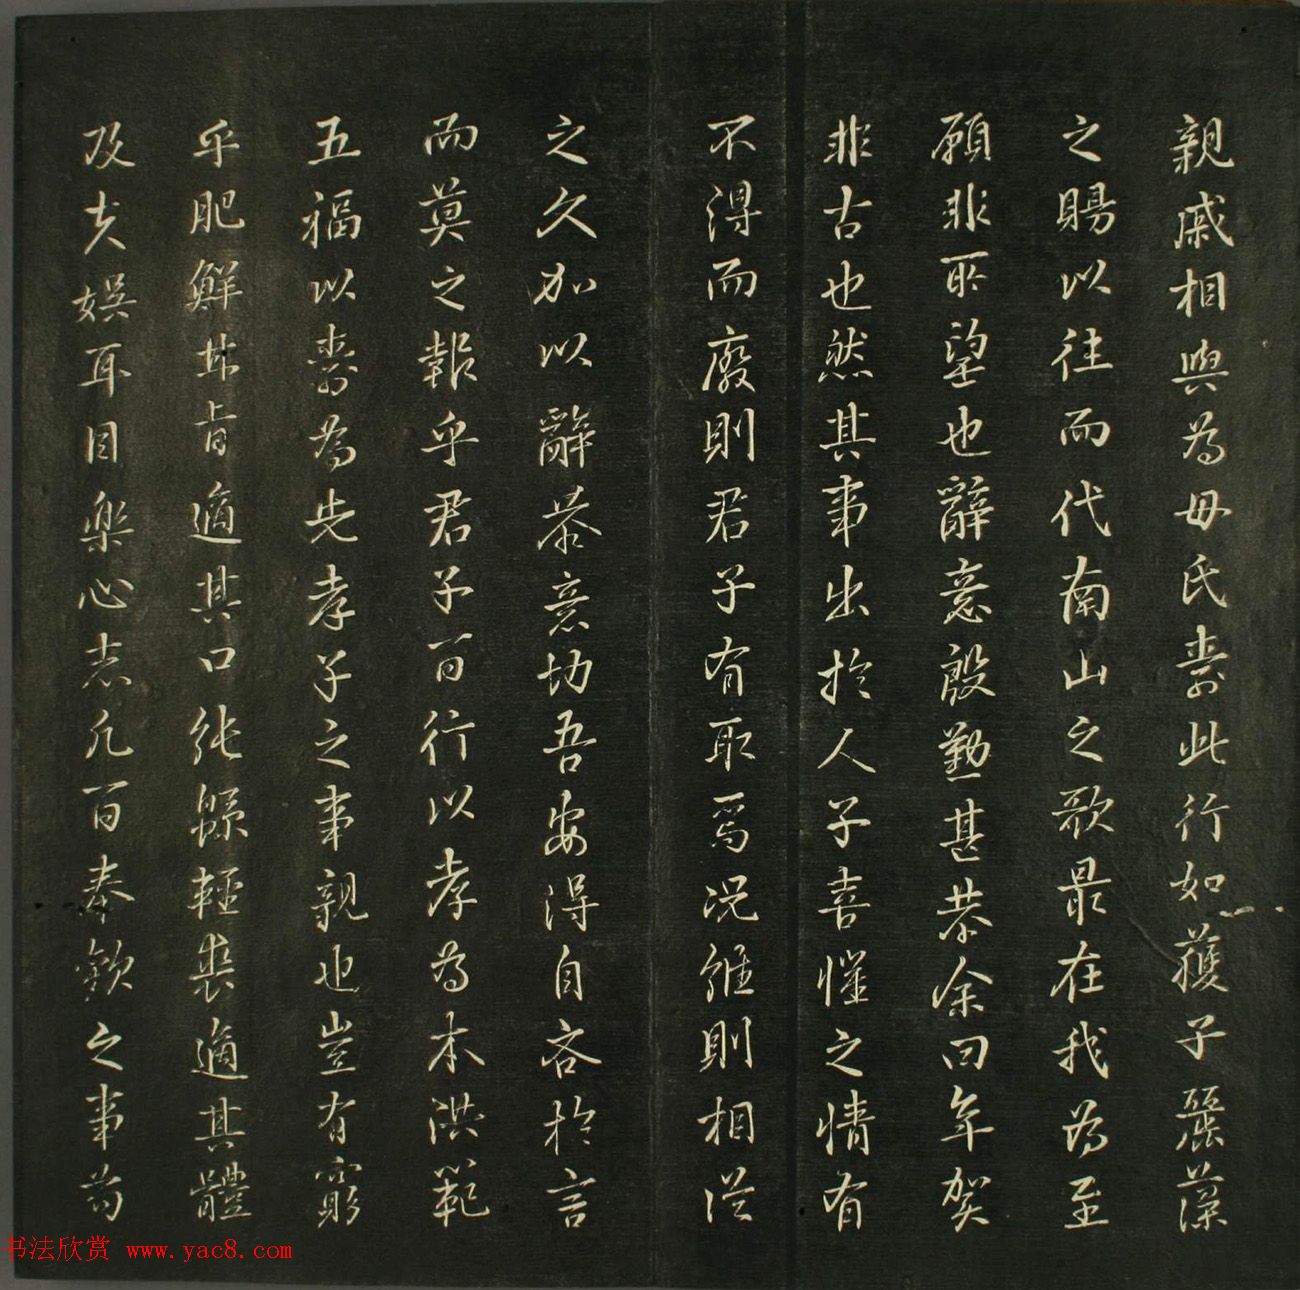 親戚相與為母氏壽此行如獲子麗藻
之賜以往而代南山之歌最在我為至
願非所望也辭意殷勤甚恭余曰年賀
非古也然其事出於人子喜懼之情有
不得而廢則君子有取焉況維則相從
之久加以辭恭意切吾安得自吝於言
而莫之報乎君子百行以孝為本洪範
五福以壽為先孝子之事親也豈有窮
乎肥鮮甘旨適其口純緜輕裘適其體
及夫娛耳目樂心志凡百奉歡之事苟
书法欣赏 www.yac8.com